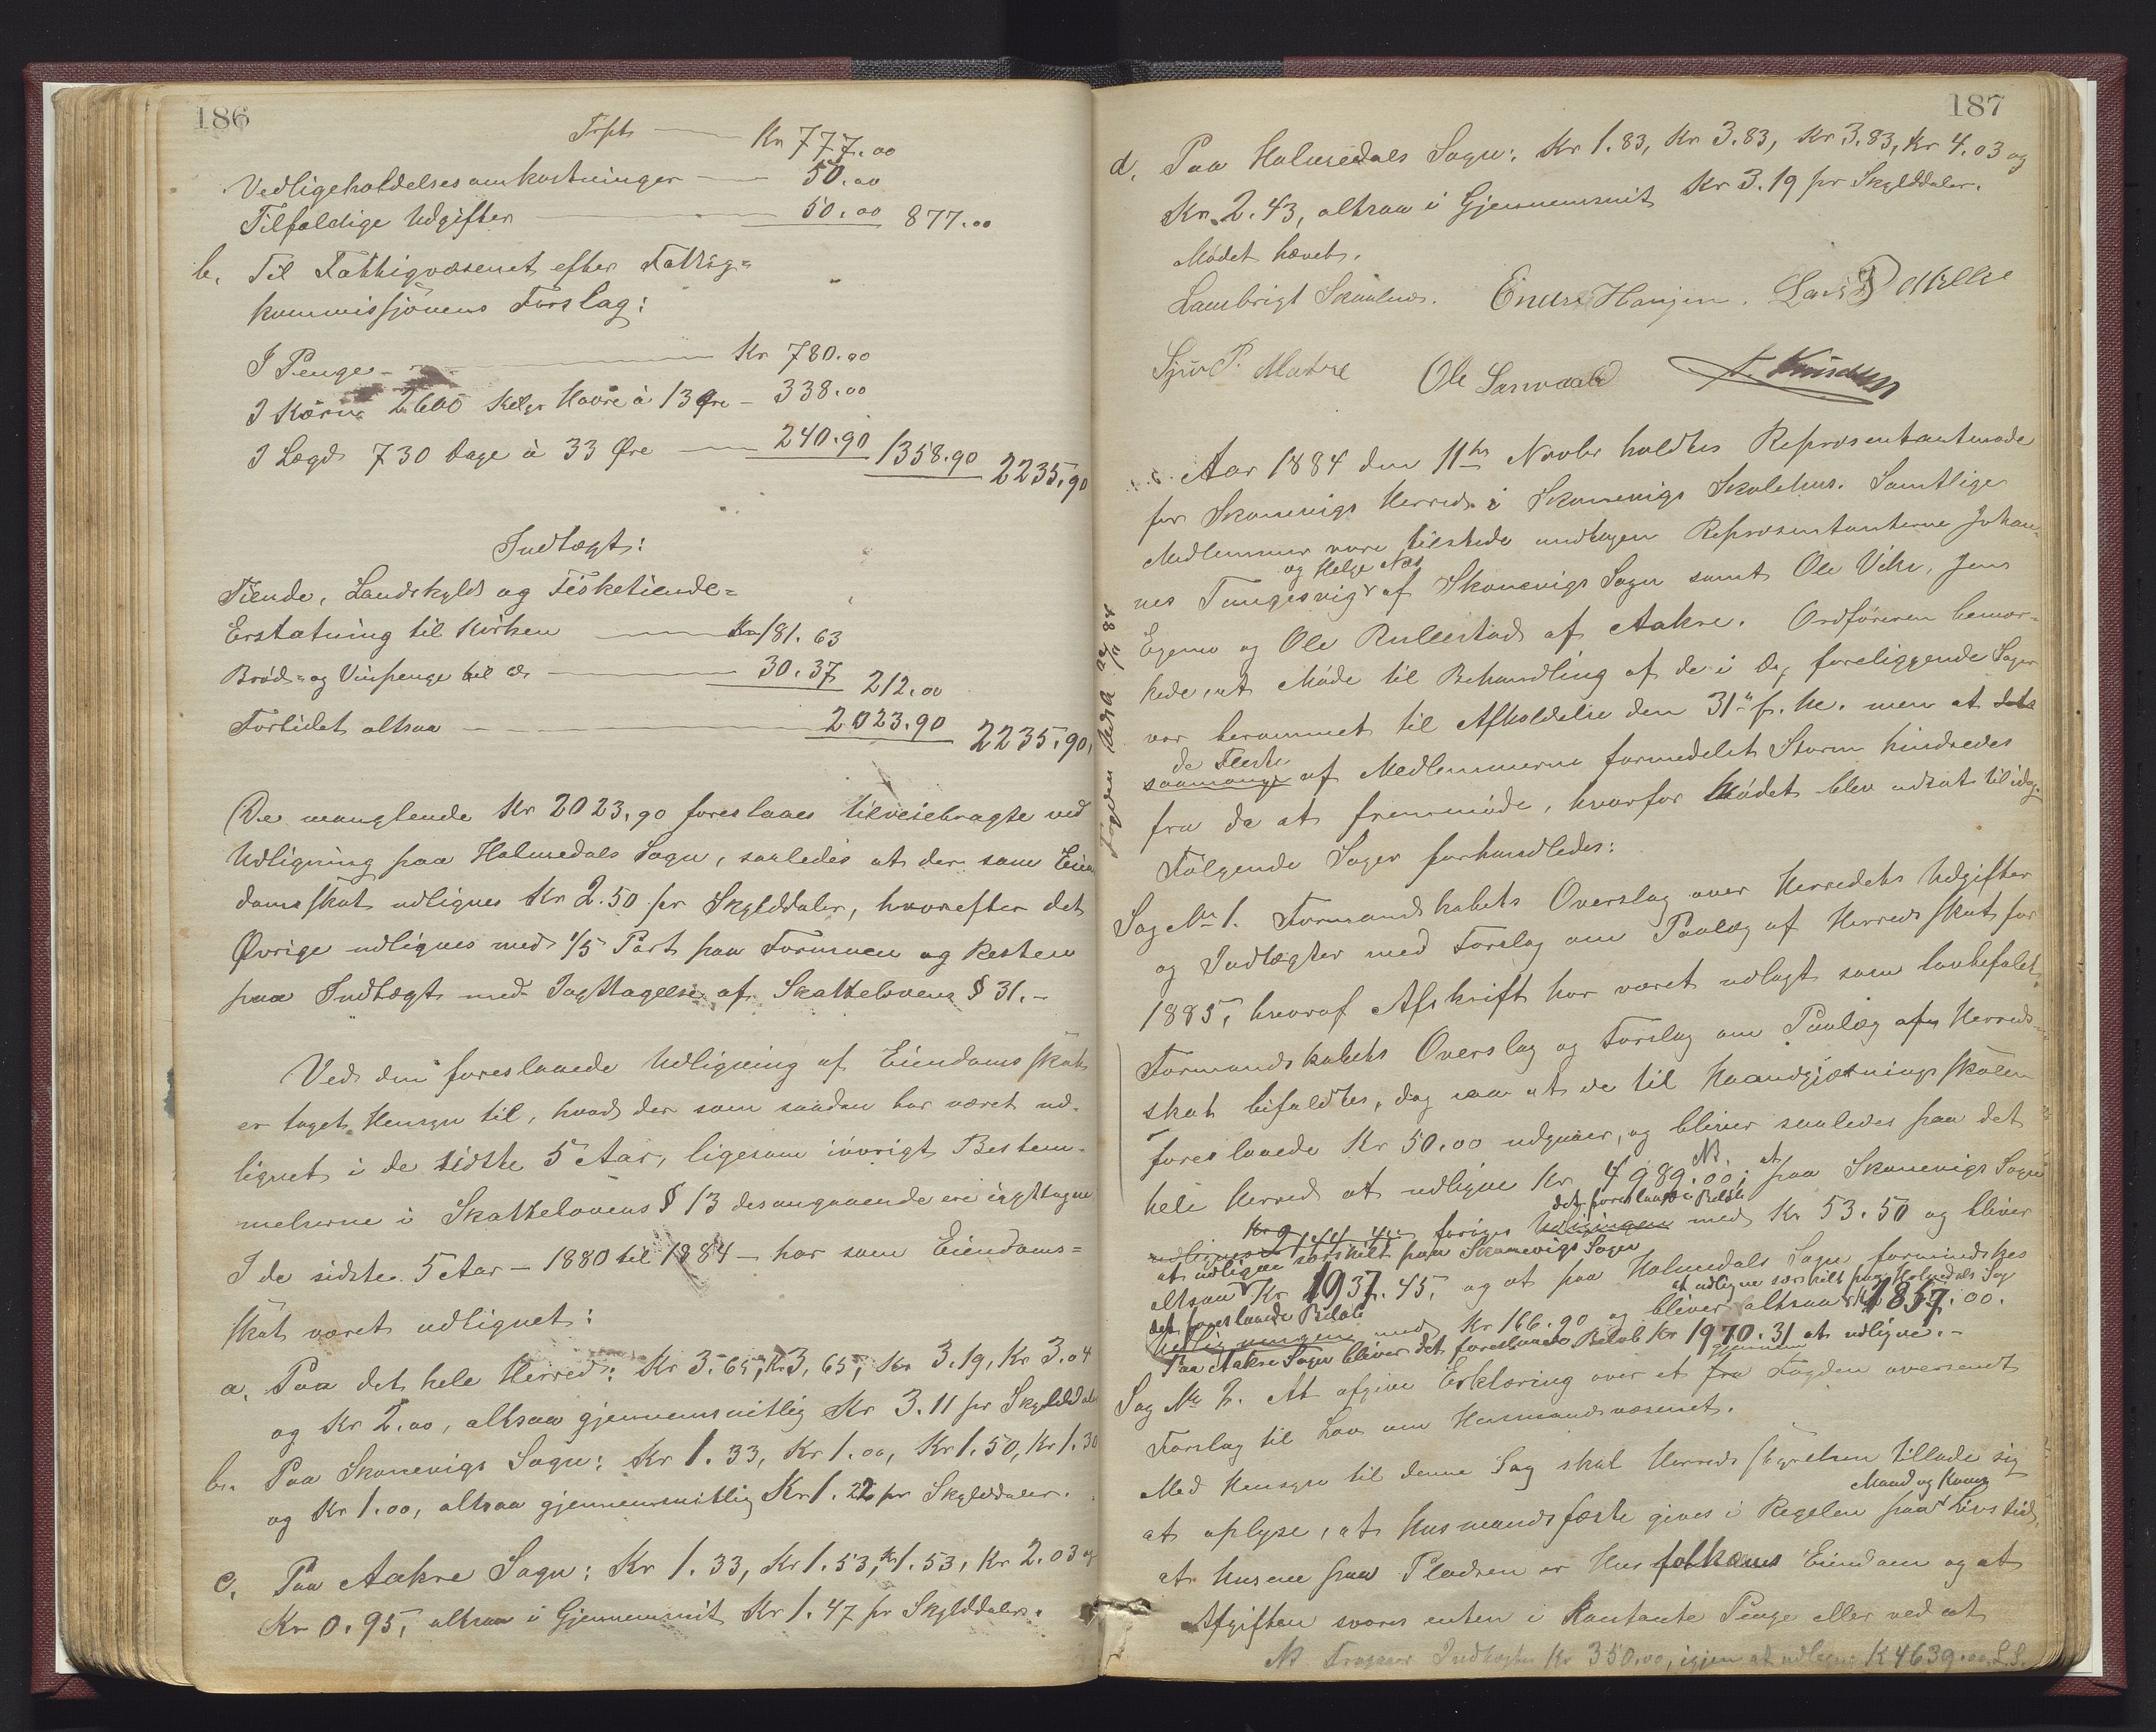 186
Trpt Kr 777.00
Vedligeholdelsesomkostninger 50.00
Tilfældige Udgifter 50.00 877.00
b. Til Fattigvæsenet efter Fattig=
kommissjonens Forslag:
I Penge Kr 780.00
I Kørn 2600 Kilgr Havre à 13 Øre 338.00
I Lægd 730 Dage à 33 Øre 240.90 1358.90 2235.90
Indtægt:
Tiende, Landskyld og Fisketiende=
Erstatning til Kirken Kr 181.63
Brød- og Vinpenge til do 30.37 212.00
Forlidet altsaa 2023.90 2235.90,
De manglende Kr 2023,90 foreslaaes tilveiebragte ved
Udligning paa Holmedals Sogn, saaledes at der som Eien
domsskat udlignes Kr 2.50 pr Skylddaler, hvorefter det
Øvrige udlignes med 1/5 Part paa Formuen og Resten
paa Indtægt med Iagttagelse af Skattelovens § 31.-
Ved den foreslaaede Udligning af Eiendomsskat
er taget Hensyn til, hvad der som saadan har været ud-
lignet i de sidste 5 Aar, ligesom iøvrigt Bestem-
melserne i Skattelovens § 13 desangaaende ere iagttagne
I de sidste 5 Aar - 1880 til 1884 - har som Eiendoms=
skat været udlignet:
a. Paa det hele Herred: Kr 3.65, Kr 3,65, Kr 3.19, Kr 3.04
og Kr 2.00, altsaa gjennemsnitlig Kr 3.11 pr Skylddaler
b. Paa Skonevigs Sogn: Kr 1.33, Kr 1.00, Kr 1.50, Kr 1.30
og Kr 1.00, altsaa gjennemsnitlig Kr 1.22 pr Skylddaler.
c. Paa Aakre Sogn: Kr 1.33, Kr 1.53, Kr 1.53, Kr 2.03 og
Kr 0.95, altsaa i Gjennemsnit Kr 1.47 pr Skylddaler.
187
d. Paa Holmedals Sogn: Kr 1.83, Kr 3.83, Kr 3.83, Kr 4.03 og
Kr. 2.43, altsaa i Gjennemsnit Kr 3.19 pr Skylddaler.
Mødet hævet.
Lambrigt Skaalnes. Endre Haugen. Lars P Milje
Sjur P. Matre Ole Sarvoald
Aar 1884 den 11te Novbr holdtes Repræsentantmøde
for Skonevigs Herred i Skonevigs Skolehus. Samtlige
Medlemmer vare tilstede undtagen Repræsentanterne Johan-
og Helge Næs
nes Tungesvig af Skonevigs Sogn samt Ole Vike, Jens
Egemo og Ole Rullestad af Aakre. Ordføreren bemær-
kede, at Møde til Behandling af de i Dag foreliggende Sager
var berammet til Afholdelse den 31te f. M. men at det
de Fleste
saamange af Medlemmerne formedelst Storm hindredes
fra da at fremmøde, hvorfor Mødet blev udsat til idag.
Følgende Sager forhandledes:
Sag No 1. Formandskabets Overslag over Herredets Udgifter
og Indtægter med Forslag om Paalæg af Herredsskat for
1885, hvoraf Afskrift har været udlagt som lovbefalet.
Formandskabets Overslag og Forslag om Paalæg af Herreds-
skat bifaldtes, dog saa at de til Haandgjerningsskolen
foreslaaede Kr 50.00 udgaaer, og bliver saaledes paa det
NB. at
hele Herred at udligne Kr 4989.00; paa Skonevigs Sogn
det foreslaaede Beløb
udlignes forøges Udligningen med Kr 53.50 og bliver
at udligne særskilt paa Skonevigs Sogn
altsaa Kr 1937.45, og at paa Holmedals Sogn formindskes
det foreslaaede Beløb at udligne særskilt paa Holmedals Sogn
Udligningen med Kr 166.90 og bliver altsaa Kr 1857.00.
Paa Aakre Sogn bliver det foreslaaede Beløb Kr 1970.31 at udligne.-
gjennem
Sag No 2. At afgive Erklæring over et fra Fogden oversendt
Forslag til Lov om Husmandsvæsenet.
Med Hensyn til denne Sag skal Herredsstyrelsen tillade sig
Mand og Kones
at oplyse, at Husmandsfæste gives i Regelen paa Livstid,
at Husene paa Pladsen er Husfolkenes Eiendom og at
Afgiften svares enten i Kontante Penge eller ved at
NB Fragaar Indtægter Kr 350,00, igjen at udligne K 4639.00. L.S.